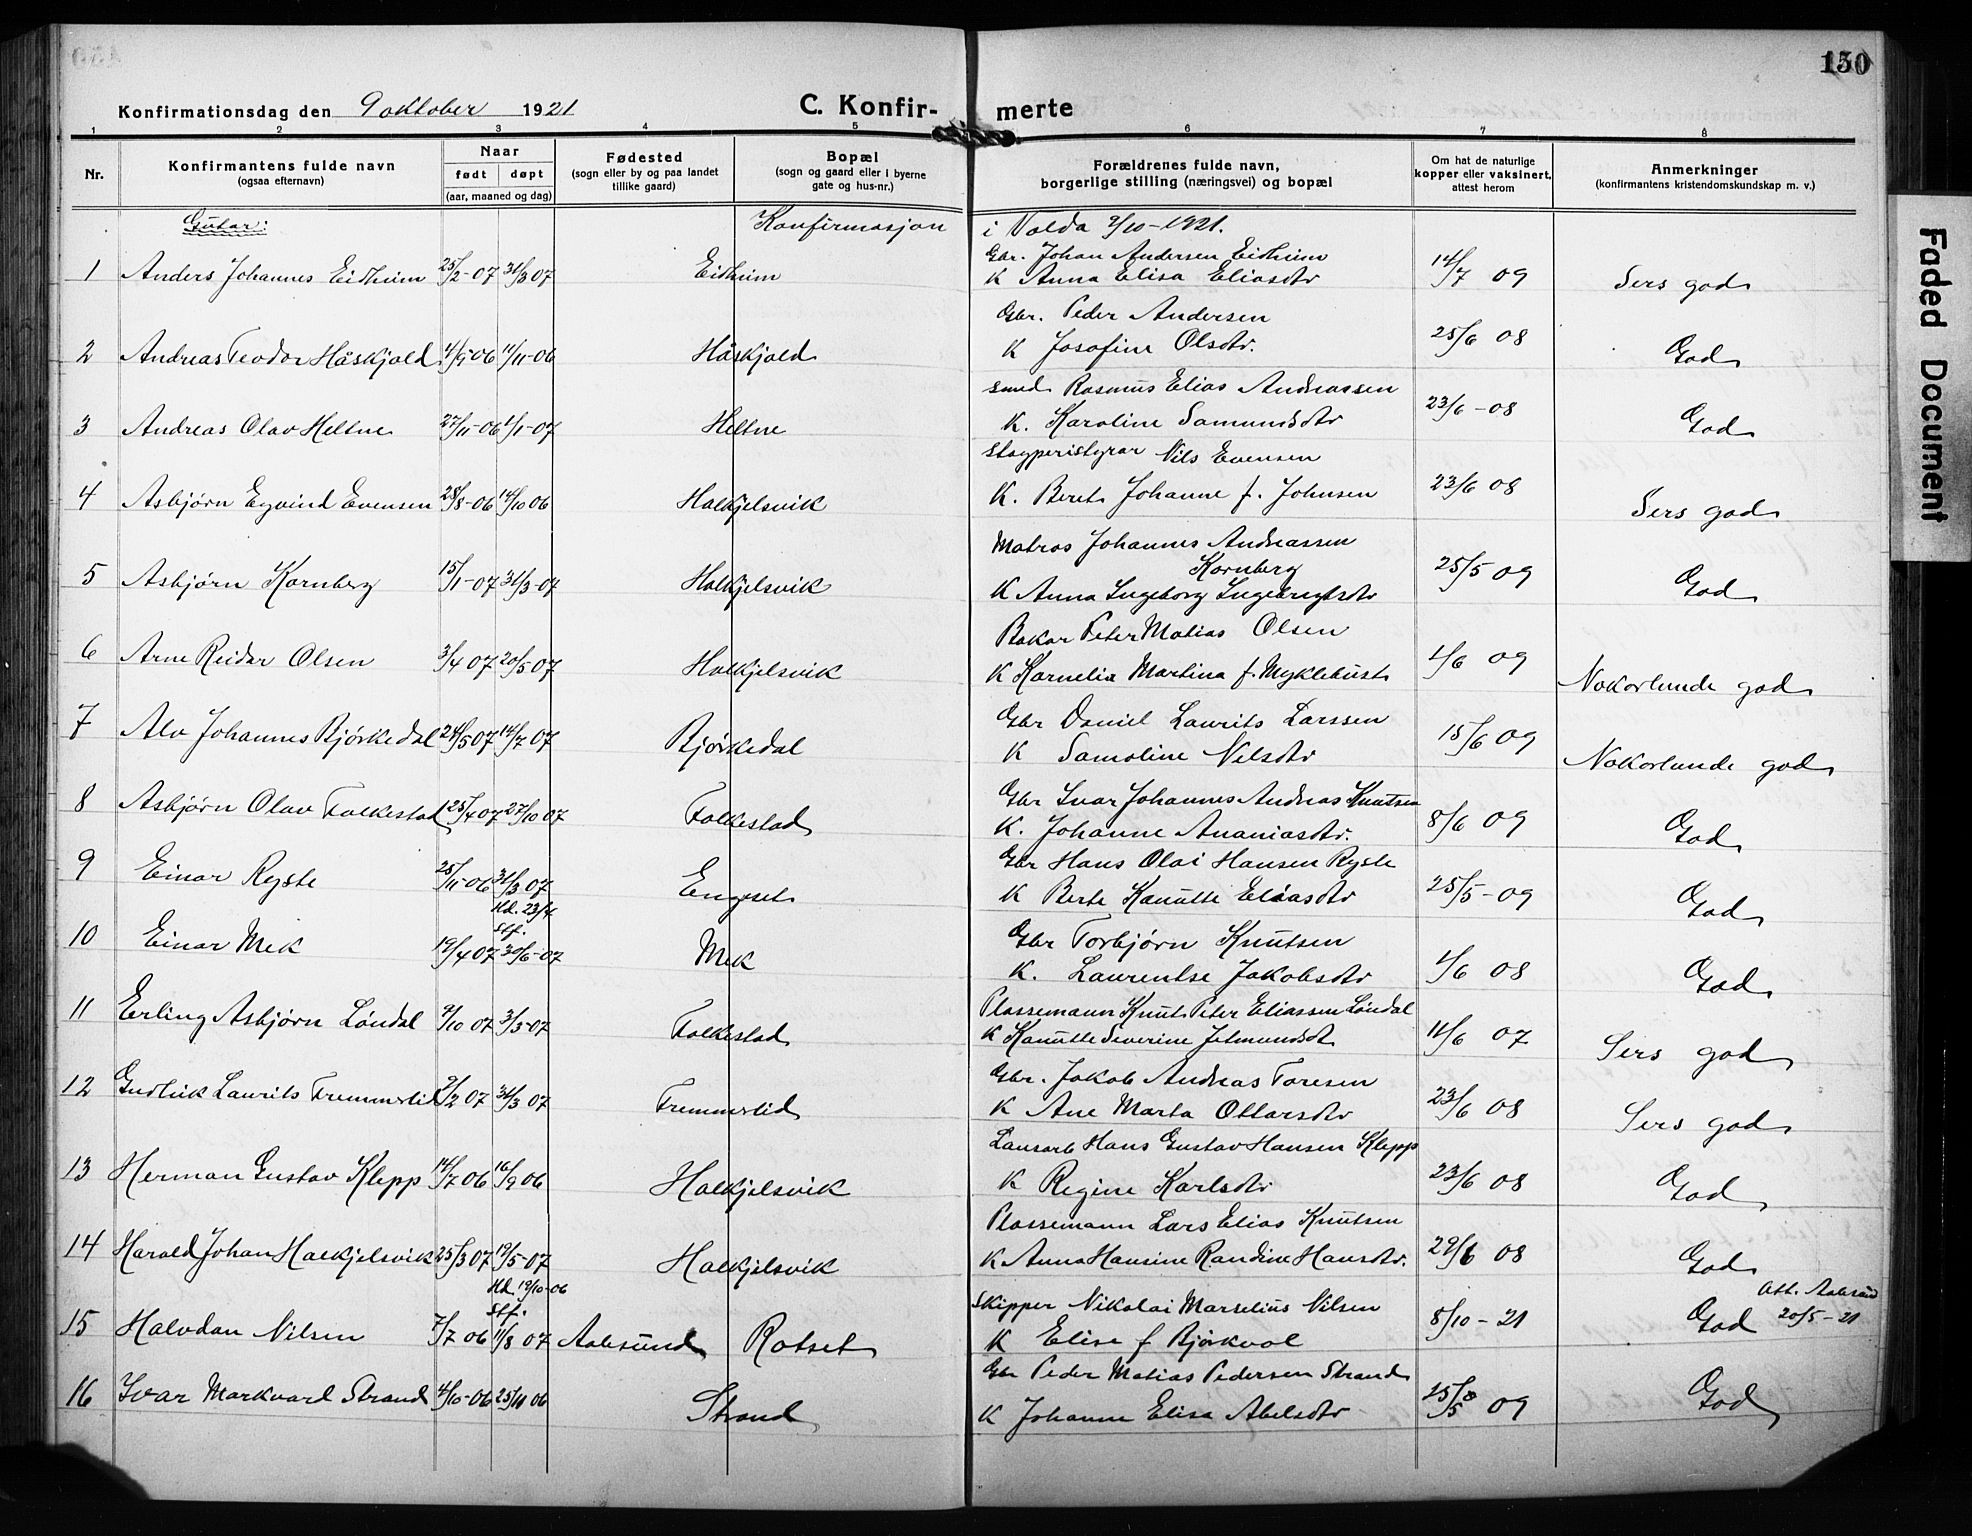 150
Konfirmationsdag den 9 oktober 1921
C. Konfir- merte
1 2 3 4 5 6 7 8
Nr.
Konfirmantens fulde navn
(ogsaa efternavn)
Naar
født døpt
(aar, maaned og dag)
Fødested
(sogn eller by og paa landet
tillike gaard)
Bopæl
(sogn og gaard eller i byerne
gate og hus-nr.)
Forældrenes fulde navn,
borgerlige stilling (næringsvei) og bopæl
Om hat de naturlige
kopper eller vaksinert,
attest herom
Anmerkninger
(konfirmantens kristendomskundskap m. v.)
Gutar: Konfirmasjon i Volda 9/10-1921.
Gbr. Johan Andersen Eidheim
1 Anders Johannes Eidheim 25/2-07 31/3 07 Eidheim K Anna Elisa Eliasdtr 14/7 09 Sers god
Gbr. Peder Andersen
2 Andreas Teodor Håskjold 4/9-06 11/11-06 Håskjold K Josefine Olsdtr. 25/6 08 God
smed Rasmus Elias Andreassen
3 Andreas Olav Heltne 27/11-06 1/1-07 Heltne K. Karoline Samundsdtr 23/6-08 God
Nils Evensen
4 Asbjørn Eyvind Evensen 28/8-06 14/10 06 Halkjelsvik K. Beret Johanne f. Johnsen 23/6 08 Sers god
Matros Johannes Andreassen
Kornberg
5 Asbjørn Kornberg 15/1-07 31/3-07 Halkjelsvik K Anna Ingeborg Ingebrigtsdtr 25/5 09 God
Bakar Peter Matias Olsen
6 Arne Reidar Olsen 3/4 07 20/5 07 Halkjelsvik K Kornelia Martina f. Myklebust 1/6 09 Nokorlunde god
Gbr Daniel Laurits Larssen
7 Alv Johannes Bjørkedal 24/5 07 14/7 07 Bjørkedal K Samoline Nilsdtr 15/6 09 Nokorlunde god
Gbr Ivar Johannes Andreas Knutsen
8 Asbjørn Olav Folkestad 25/4 07 27/10 07 Folkestad K. Johanne Ananiasdtr. 8/6 09 God
Gbr Hans Olai Hansen Ryste
9 Einar Ryste 25/11-06 31/3 07 Engset K Berte Kanutte Eliasdtr 25/5-09 God
Hd. 23/4
stf.
Gbr Torbjørn Knutsen
10 Einar Mek 19/4 07 30/6-07 Mek K. Laurentse Jakobsdtr 1/6 08 God
Plassemann Knut Peter Eliassen Løndal
11 Erling Asbjørn Løndal 9/10 07 3/3-07 Folkestad K Kanutte Severine Jetmundsdt 11/6 07 Sers god
Gbr. Jakob Andreas Toresen
12 Gudleik Laurits Fremmerlid 9/2 07 31/3 07 Fremmerlid K Ane Marta Ottarsdtr 23/6 08 Sers god
Lausarb Hans Gustav Hansen Klepp
13 Herman Gustav Klepp 14/7 06 16/9 06 Halkjelsvik K Regine Karlsdtr 23/6 08 God
Plassemann Lars Elias Knutsen
14 Harald Johan Halkjelsvik 25/3 07 19/5-07 Halkjelsvik K Anna Hansine Randine Hansdtr. 29/6 08 God
Hd. 19/10-06
stf.
Skipper Nikolai Marselius Nilsen
Att. Aalesund
20/5-21
15 Halvdan Nilsen 7/7 06 11/8 07 Aalesund Rotset K Elise f Bjørkvol 8/10-21 God
Gbr Peder Matias Pedersen Strand
16 Ivar Markvard Strand 4/10-06 25/11 06 Strand K Johanne Elisa Abelsdtr 25/5 09 God
Faded Document